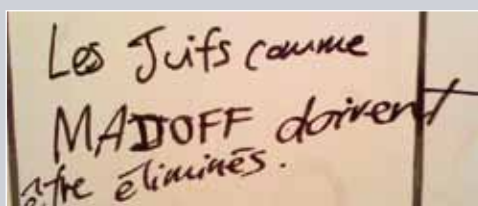 Les Juifs comme
MADOFF doivent
être éliminés.